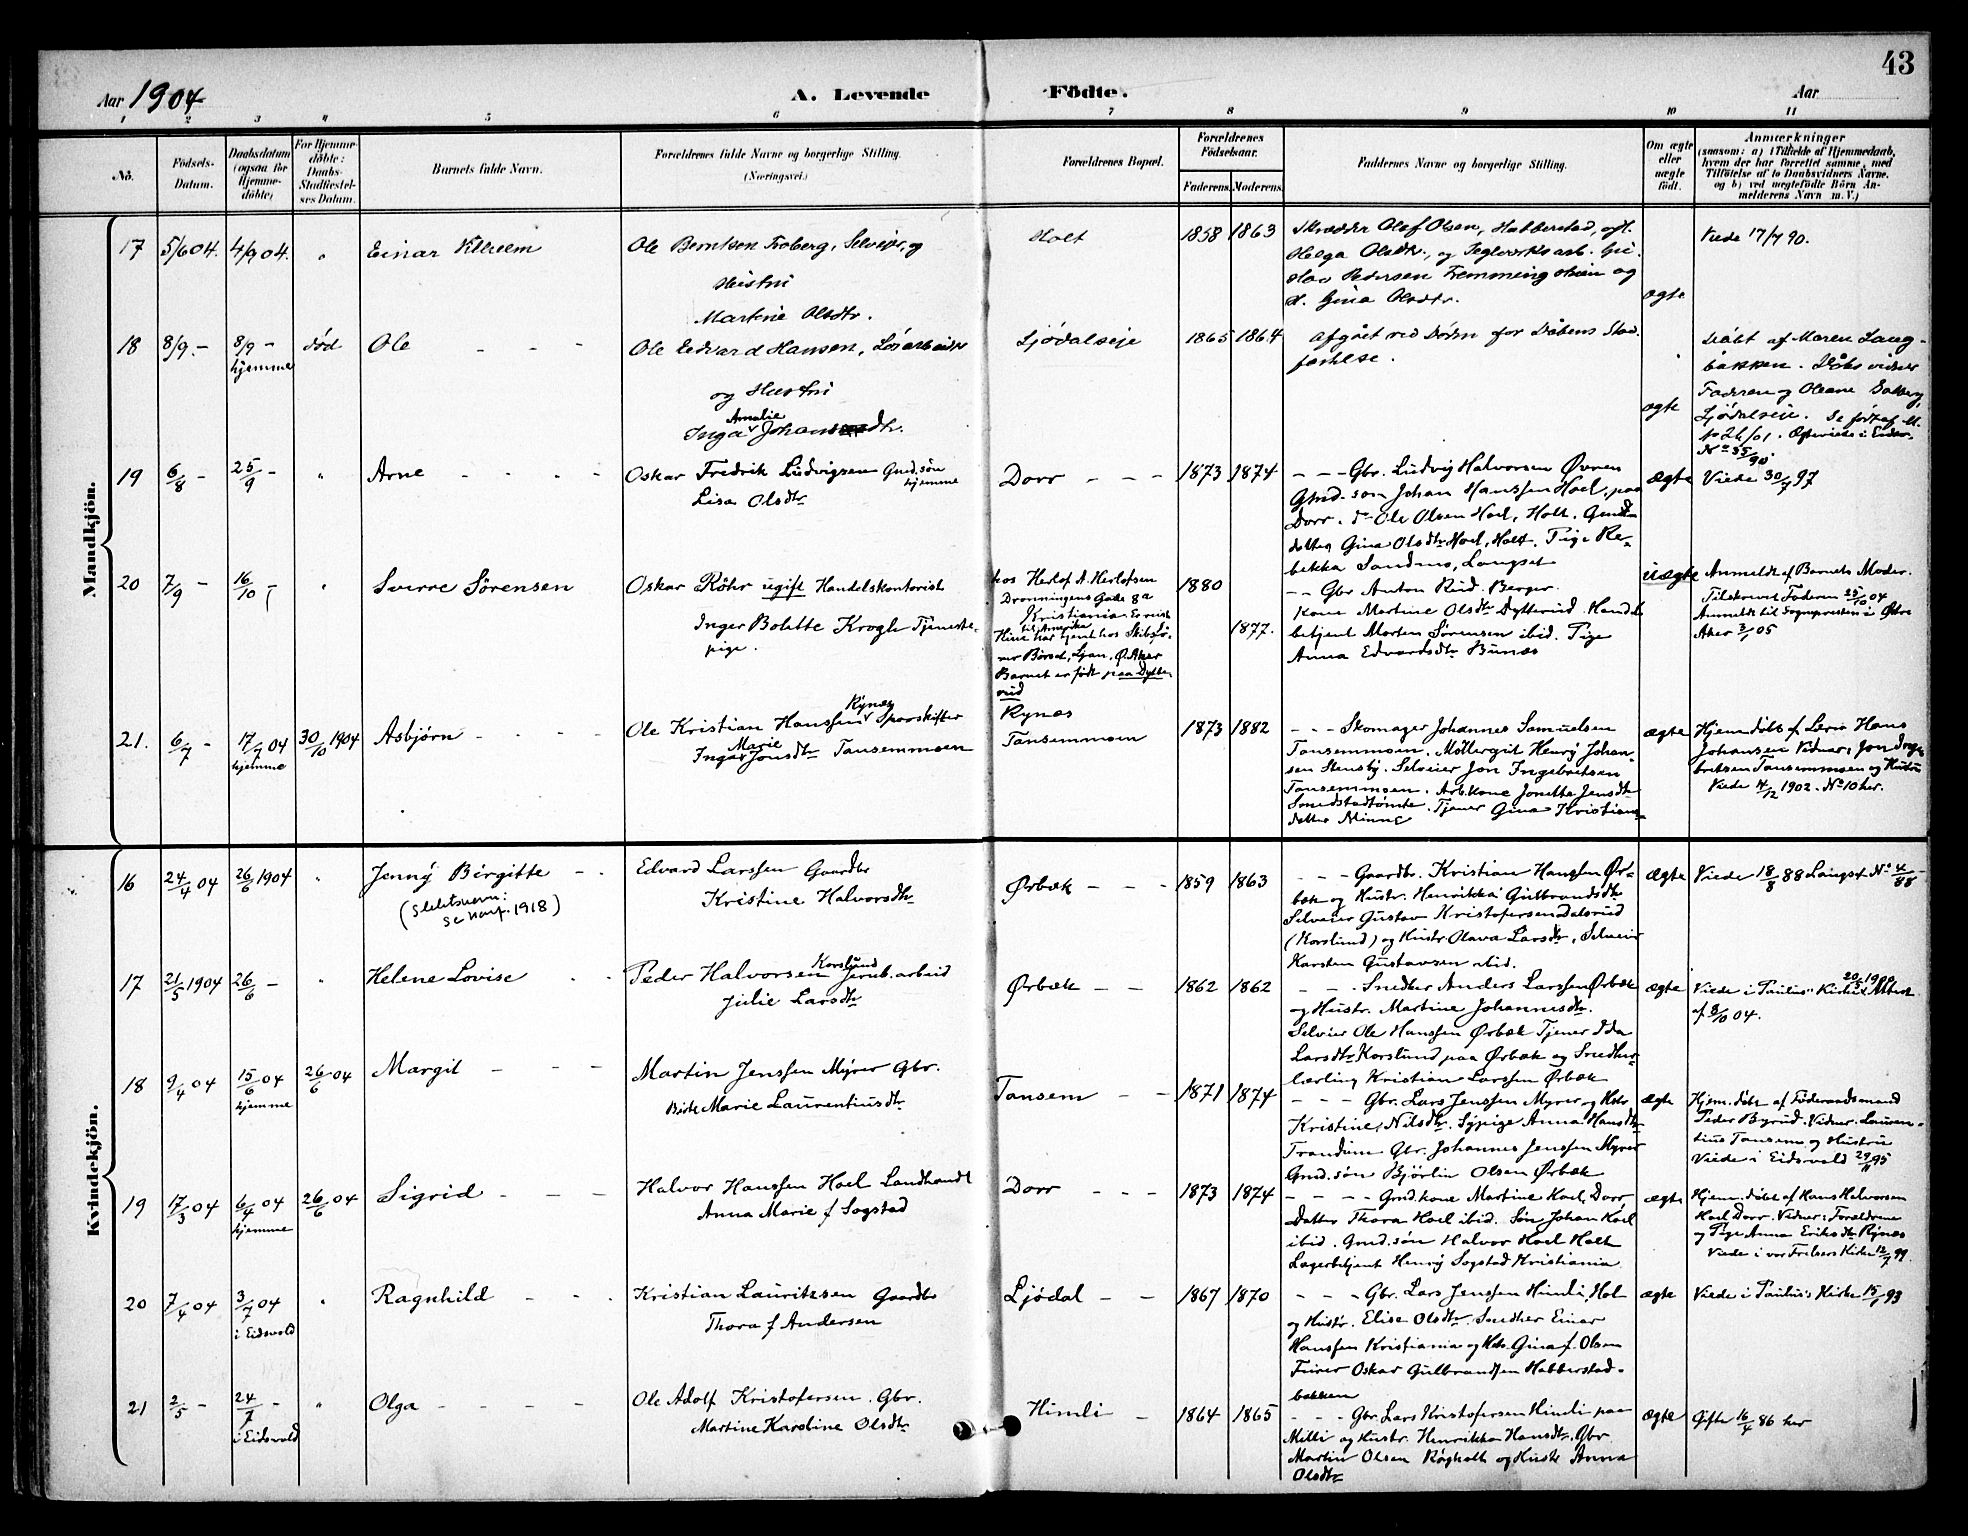 43
Aar 1904
A. Levende Fødte.
Aar
1 2 3 4 5 6 7 8 9 10 11
No.
Fødsels-
Datum.
Daabsdatum
(ogsaa for
Hjemme-
døbte)
For Hjemme-
døbte:
Daabs-
Stadfæstel-
ses Datum.
Barnets fulde Navn.
Forældrenes fulde Navne og borgerlige Stilling.
(Næringsvei.)
Forældrenes Bopæl.
Forældrenes
Fødselsaar.
Faderens. Moderens.
Faddernes Navne og borgerlige Stilling.
Om ægte
eller
uægte
født.
Anmærkninger
(saasom: a) i Tilfælde af Hjemmedaab,
hvem der har forrettet samme, med
Tilføielse af to Daabsvidners Navne.
og b) ved uægtefødte Børn An-
melderens Navn m. V.)
Mandkjön.
17 5/6 04. 4/9 04. " Einar Vilhelm
Ole Berntsen Froberg, Selveier, og
Hustru
Martine Olsdtr.
Holt
1858 1863
Skrædder Olof Olsen, Habberstad,
Helga Olsdtr., og Teglverksarb.
Pedersen Fremming og
Gina Olsdtr.
ægte
Viede 17/7 90.
18 8/9.- 8/9 - død Ole - - -
hjemme
Ole Edvard Hansen, Løsarbeider
og Hustru
Amalie
Inga Johansdtr.
Ljødalseje
1865 1864
Afgået ved Døden før Dåbens Stad-
fæstelse.
ægte
Døbt af Maren Laug-
bakken. Dåbsvidner
Faderen og Oleane Solberg,
Ljødalseje.
No 35/90.
19 6/8 - 25/9 - " Arne - - - -
Oskar Fredrik Ludvigsen Gmd.søn
hjemme
Lisa Olsdtr
Dorr - - -
1873 1874
- - - Gbr. Ludvig Halvorsen Øvren
Gmd.søn Johan Hanssen Hoel, paa
Dorr. do Ole Olsen Hoel, Holt. Gmd-
datter Gina Olsdtr Hoel, Holt. Pige Re-
bekka Sandnes, Langset
ægte
Viede 30/7 97
20 7/9 - 16/10 - " Sverre Sörensen
Oskar Röhr ugift Handelskontorist
Inger Bolette Krogh Tjeneste-
pige.
hos Herlof A. Herlofsen
Dronningens Gade 8a
Kristiania Er reist
til Amerika
Hun har tjent hos Skibsfø-
rer Børsed, Ljan, Ø. Aker
Barnet er født paa Dytte-
rud
1880
1877.
- - Gbr Anton Rud. Berger.
Kone Martine Olsdtr Dytterud. Handels-
betjent Morten Sørensen ibid. Pige
Anna Edvardsdtr Bunæs
uægte
Anmeldt af Barnets Moder.
Tilskrevet Faderen 25/10 04
Anmeldt til Sognepresten i Østre
Aker 3/1 05
21. 6/7 - 17/7 04 30/10 1904 Asbjørn - - - -
hjemme
Rynæs
Ole Kristian Hanssen Sporskifter
Marie
Inga Jonsdtr Tansemmoen
Rynæs
Tansemmoen
1873 1882
- - - Skomager Johannes Samuelsen
Tansemmoen. Møllergut Henry Johan-
sen Stensby. Selveier Jon Ingebretsen
Tansemmoen. Arb.kone Jonetta Jensdtr
Smedstadtømte. Tjener Gina Kristians-
datter Minne
ægte
Hjem. døbt af Lærer Hans
Johansen Vidner: Jon Inge-
bretsen Tansemmoen og Hustru
Viede 4/12 1902. No 10 her.
Kvindekjön.
16 24/4 04 26/6 1904 " Jenny Birgitte - -
(Slektsnavn:
Se konf. 1918)
Edvard Larssen Gaardbr
Kristine Halvorsdtr
Ørbæk - - -
1859 1863
- - - Gaardbr. Kristian Hanssen Ør-
bæk og Hustr. Henrikka Gulbrandsdtr
Selveier Gustav Kristofersen Dalsrud
(Korslund) og Hustr Olava Larsdtr, Selveier
Karsten Gustavsen ibid.
ægte
Viede 18/8 88 Langset No 4/88
17 21/5 1904 26/6 - " Helene Lovise - -
Korslund
Peder Halvorsen Jernb. arbeid
Julie Larsdtr
Ørbæk - - -
1862 1862
- - - Snedker Anders Larssen Ørbæk
og Hustr. Martine Johannesdtr.
Selveier Ole Hanssen Ørbæk Tjener Ida
Larsdtr Korslund paa Ørbæk og Snedker-
lærling Kristian Larssen Ørbæk
ægte
20/5 1900
Viede i Paulus Kirke Attest
af 3/10 04.
18 9/4 04 15/6 04 26/6 04 Margit - - -
hjemme
Martin Jenssen Myrer Gbr.
Birte Marie Laurentiusdtr
Tansem - -
1871 1874
- - - Gbr. Lars Jenssen Myrer og Hstr
Kristine Nilsdtr. Sypige Anna Hansdtr
Trandum Gbr. Johannes Jenssen Myrer
Gmd.søn Bjørlin Olsen Ørbæk
ægte
Hjem. døbt af Føderaadsmand
Peder Byrud. Vidner. Lauren-
tius Tansem og Hustru
Viede i Eidsvold 29/11 95
19 17/3 04 6/4 04 26/6 04 Sigrid - - -
hjemme
Halvor Hanssen Hoel Landhandl
Anna Marie f Sogstad
Dorr - - -
1873 1874
- - - - Gmd.kone Martine Hoel, Dorr
Datter Thora Hoel ibid. Søn Johan Hoel
ibid. Gmd.søn Halvor Hoel Holt
Lagerbetjent Henry Sogstad Kristiania
ægte
Hjem. døbt af Hans Halvorsen
Hoel Dorr. Vidner: Forældrene
og Pige Anna Eriksdtr Rynæs
Viede i vor Frelsers Kirke 12/7 99
20 7/4 04 3/7 04 " Ragnhild - - -
i Eidsvold
Kristian Lauritzsen Gaardbr
Thora f Andersen
Ljødal - -
1867 1870
- - - Gbr. Lars Jenssen Himli, Hol
og Hustr. Elise Olsdtr. Snedker Einar
Hanssen Kristiania og Hstr Gina f. Olsen
Furer Oskar Gulbrandsen Habberstad-
bakken
ægte
Viede i Paulus Kirke 15/1 93
21 2/5 - 24/7 - " Olga - - - -
i Eidsvold
Ole Adolf Kristofersen. Gbr.
Martine Karoline Olsdtr
Himli -
1864 1865
- - - Gbr Lars Kristofersen Himli paa
Milli og Hustr. Henrikka Hansdtr. Gbr
Martin Olsen Røgholt og Hustr Anna
Olsdtr
ægte
Gifte 16/4 86 her